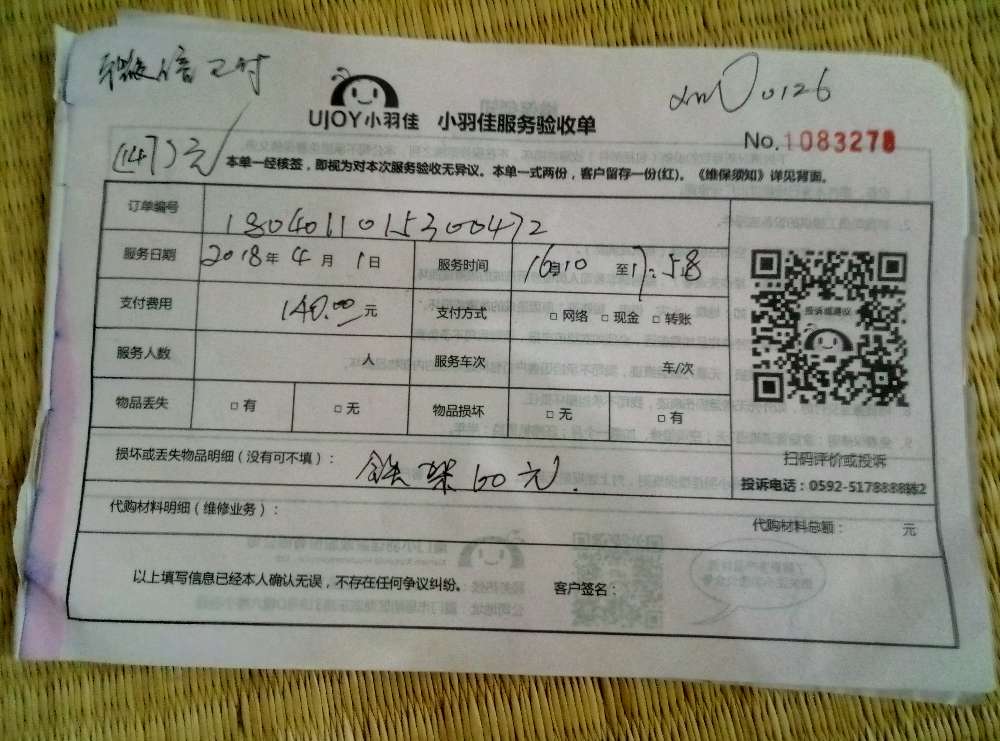 微信已付
xm 0126
UJOY小羽佳 小羽佳服务验收单
No.1083278
(147)元
本单一经核签，即视为对本次服务验收无异议。本单一式两份，客户留存一份(红)。《维保须知》详见背面。
订单编号 1804011015300472
服务日期 2018年 4 月 1日 服务时间 16:10 至17:58
支付费用 140.00元 支付方式 □ 网络 □ 现金 □ 转账
投诉或建议
服务人数 人 服务车次 车/次
物品丢失 □ 有 □ 无 物品损坏 □ 无 □ 有
扫码评价或投诉
损坏或丢失物品明细（没有可不填）： 铁架60元.
投诉电话：0592-5178888转2
代购材料明细（维修业务）： 代购材料总额： 元
以上填写信息已经本人确认无误，不存在任何争议纠纷。 客户签名：